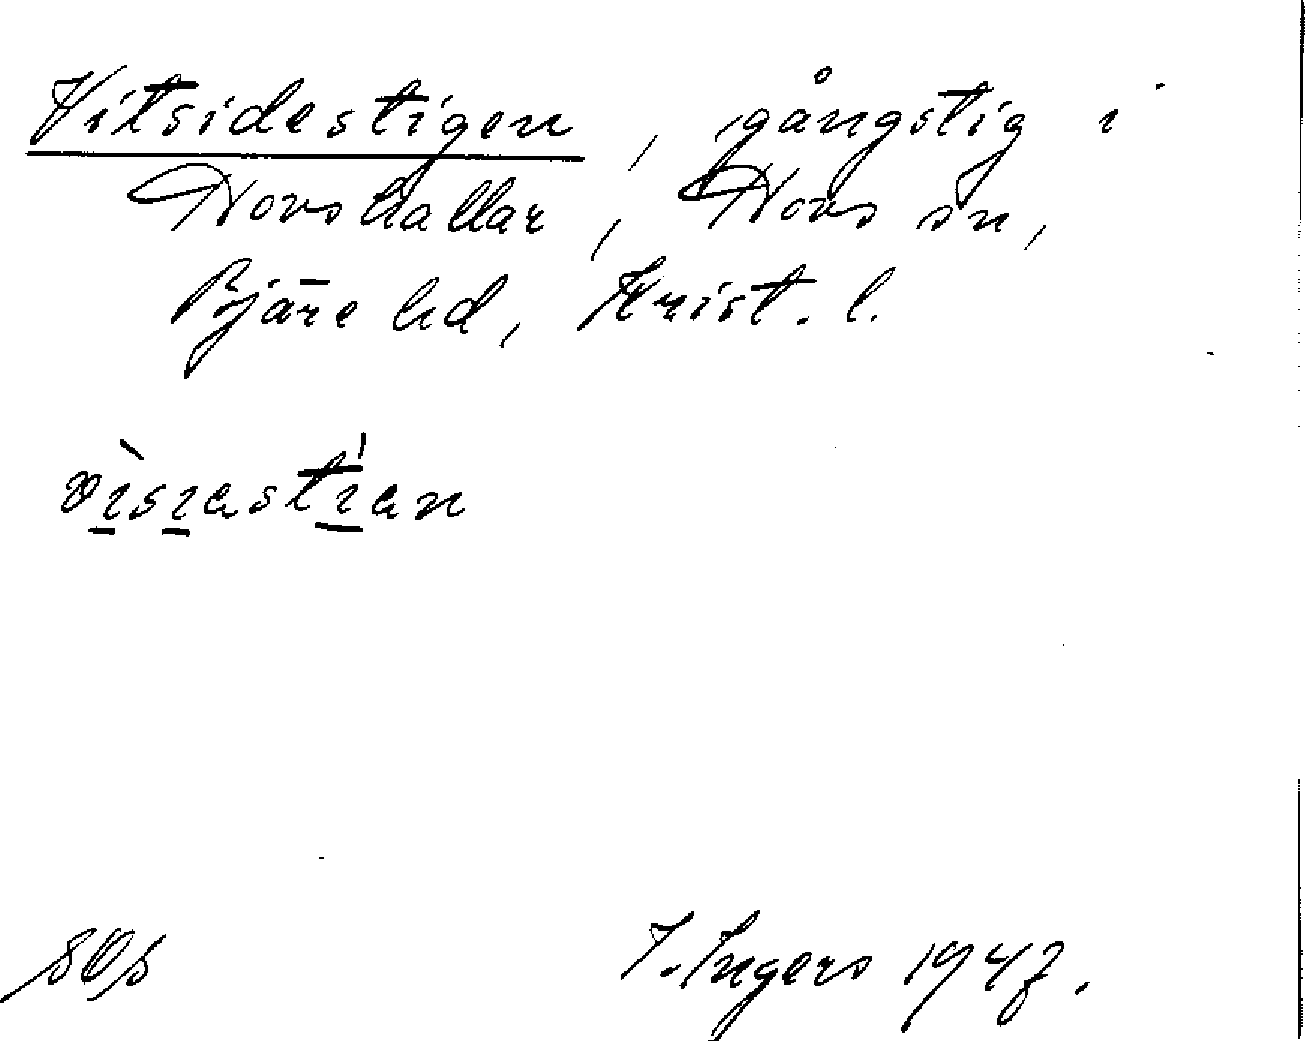 Vitsidestigen, gångstig i
Hovshallar, Hovs sn,
Bjäre hd, Krist. l.
vìsiastian
I. Ingers 1947.